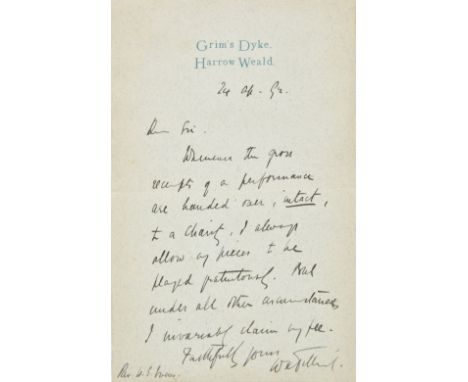 Grim's Dyke,
Harrow Weald.
24 Ap. 92.
Dear Sir.
Whenever the gross
receipts of a performance
are handed over, intact,
to a charity, I always
allow my pieces to be
played gratuitously. But
under all other circumstances
I invariably claim my fee.
Faithfully yours
WS Gilbert.
Rev. H. S.